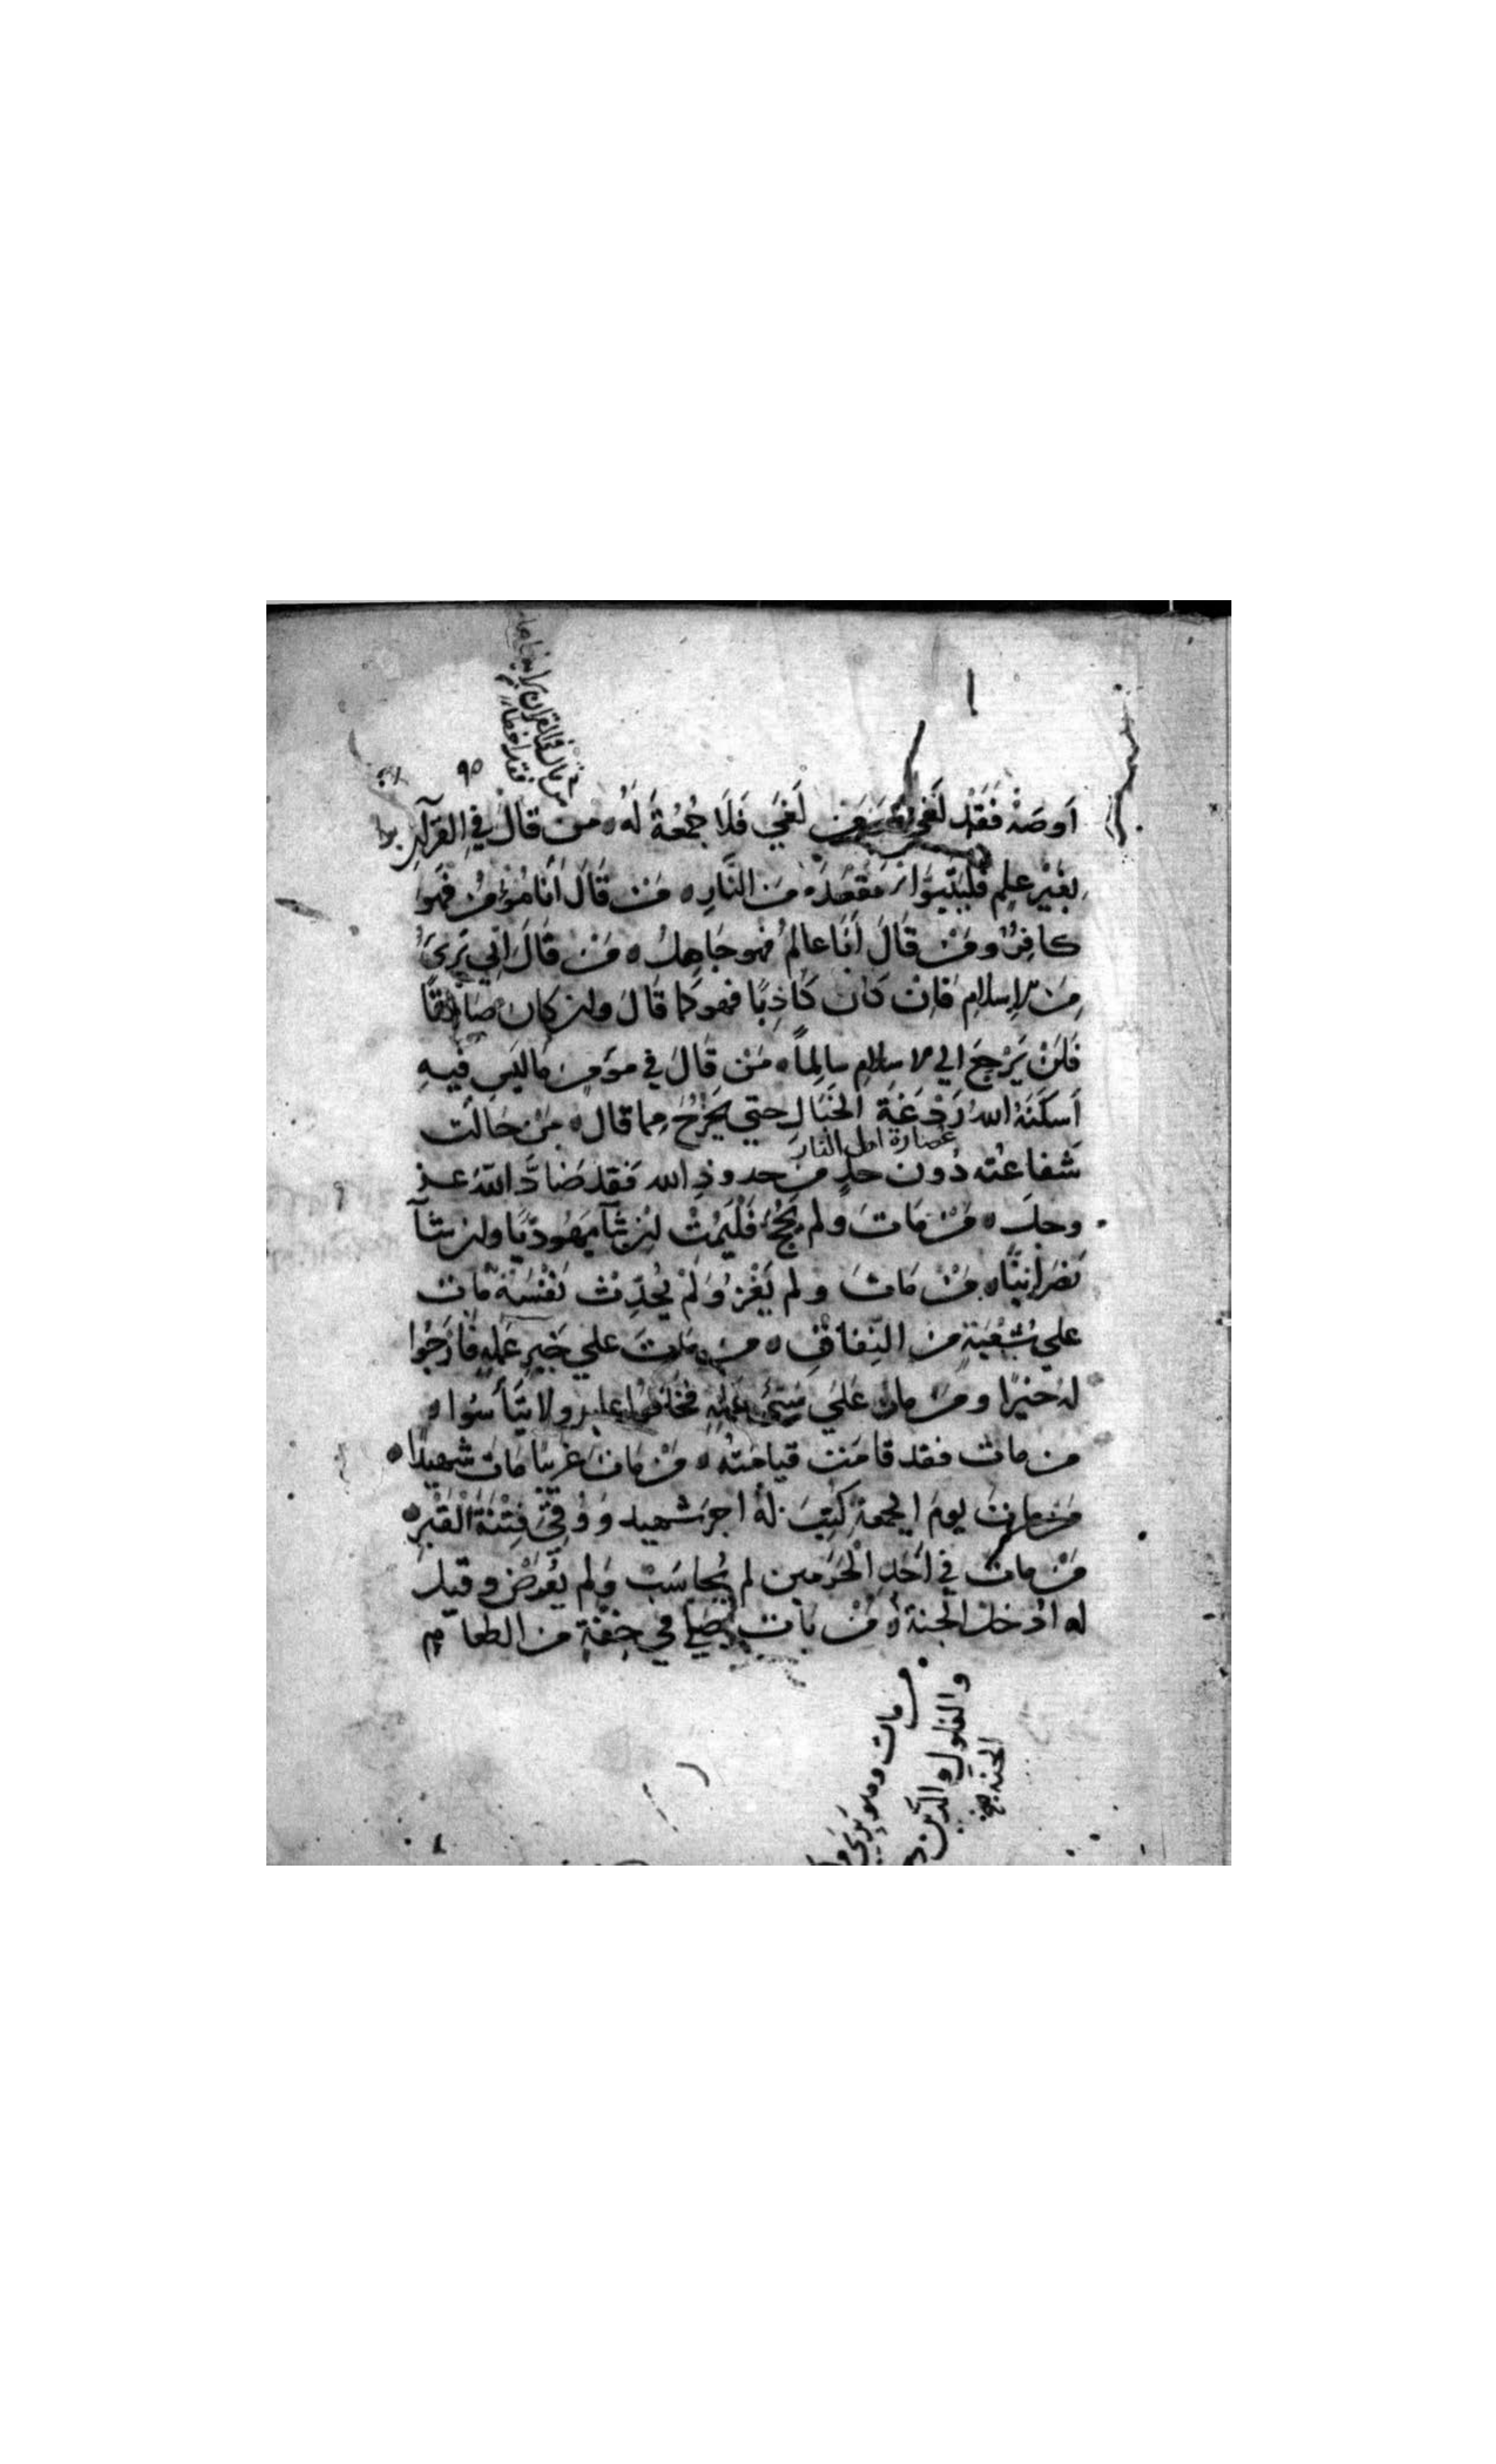 من قال في القران برايه
فقد اخطا
٩٥
اَوصَهْ فَقَدْ لَغَي وَمَن لَغَي فَلَا جُمُعَةَ لَهُ ه من قالَ في القرآنِ
بغَيْرِ علمٍ فليتبوا مَقعَدَهُ مِنَ النَّارِ ه مَنْ قَالَ أَنا مُؤمنٌ فهُوَ
كافِرٌ ومَنْ قَالَ أَنَا عالمٌ فهو جَاهِلٌ ه مَنْ قَالَ اني بَرِىٌ
مِنَ الاسلامِ فَاِنْ كان كَاذِبًا فهو كما قَالَ وان كان صَادِقًا
فَلَنْ يَرْجِعَ الي الاسلامِ سالِماً ه مَنْ قَالَ في مؤمنٍ ما ليس فيهِ
اَسكَنَهُ اللهُ رَدْغَةَ الخَبَالِ حتي يَخْرُجَ مما قال ه مَنْ حَالَت
عصارة اهل النار
شَفاعتُه دُونَ حدٍ من حدودِ الله فَقد ضَادَّ اللهَ عز
وجل ه مَنْ مَاتَ ولم يَحُجَّ فَلْيَمُتْ ان شآ يَهُوديًا وان شآ
نَصرَانِيًا ه مَنْ مَاتَ ولم يَغْزُ وَلَمْ يُحَدِّث نَفْسَهُ مات
علي شُعْبَةٍ من النِفاقِ ه من مات علي خَيرِ عَمَلِهِ فَارْجُوا
لهُ خيرًا ومَن مات عَلي سَيِّئِ عَمَلِهِ فخَافوا عليه ولا تيأسُوا ه
من مات فقد قامَت قيامتُه ه مَنْ مَاتَ غريبًا مَاتَ شهيدًا ه
مَنْ مات يومَ الجمعةِ كُتِبَ لهُ اجرُ شهيد وَوُقِيَ فِتْنَةَ القَبْرِ ه
مَنْ مات في اَحَدِ الْحَرَمين لم يُحاسَبْ ولم يُعرَضْ وقيل
له ادْخل الجنةَ ه مَنْ بات يصلي في خِفَّةٍ من الطعام
من مات وهو بَرِي
والغلول والدَّين
الجنة